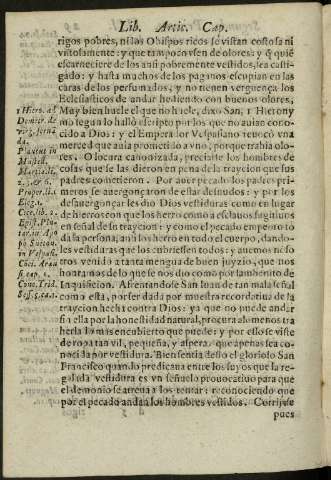 Lib. Artic. Cap.
rigos pobres, ni los Obispos ricos se vistan costosa ni
vistosamente: y que tampoco vsen de olores: y que
escarneciere de los ansi pobremente vestidos, sea casti-
gado: y hasta muchos de los paganos escupian en las
caras de los perfumados, y no tienen verguença los
Eclesiasticos de andar hediendo con buenos olores,
Muy bien huele el que no huele, dixo San, 1 Hierony
mo segun lo halló escripto por los que no auian cono-
cido a Dios: y el Emperador Vespasiano reuocò vna
merced que auia prometido a vno, porque trahia olo-
res. O locura canonizada, preciarse los hombres de
cosas que se les dieron en pena de la traycion que sus
padres cometieron. Por auer pecado los padres pri-
meros se auergonçaron de estar desnudos: y por los
desauergonçar les dio Dios vestiduras como en lugar
de hierros con que los herro como a esclauos fugitiuos
en señal de su traycion: y como el pecado empeoro to
da la persona, ansi los herro en todo el cuerpo, dando-
les vestiduras que los cubriessen todos: y auemos noso
tros venido a tanta mengua de buen juyzio, que nos
honramos de lo que se nos dio como por sambenito de
Inquisicion. Afrentandose San Iuan de tan mala señal
como esta, por ser dada por muestra recordatiua de la
traycion hecha contra Dios: ya que no puede andar
sin ella por la honestidad natural, procura alomenos tra
herla lo mas encubierto que puede: y por esso se viste
de ropa tan vil, pequeña, y aspera, que apenas sea co-
nocida por vestidura. Bien sentia desto el glorioso San
Francisco quando predicaua entre los suyos que la re-
galada vestidura es vn señuelo prouocatiuo para que
el demonio se atreua a los tentar: reconociendo que
por el pecado andan los hombres vestidos. Corrijase
pues
1 Hiero. ad
Demetr. de
virg. serua
da.
Plautus in
Mostell.
Martia. li.
2. & 6.
Propert. li. 1
Eleg. 2.
Cice. lib. 2.
Epist. Plu-
tar. in Apo
ph Sueton.
in Vespasi.